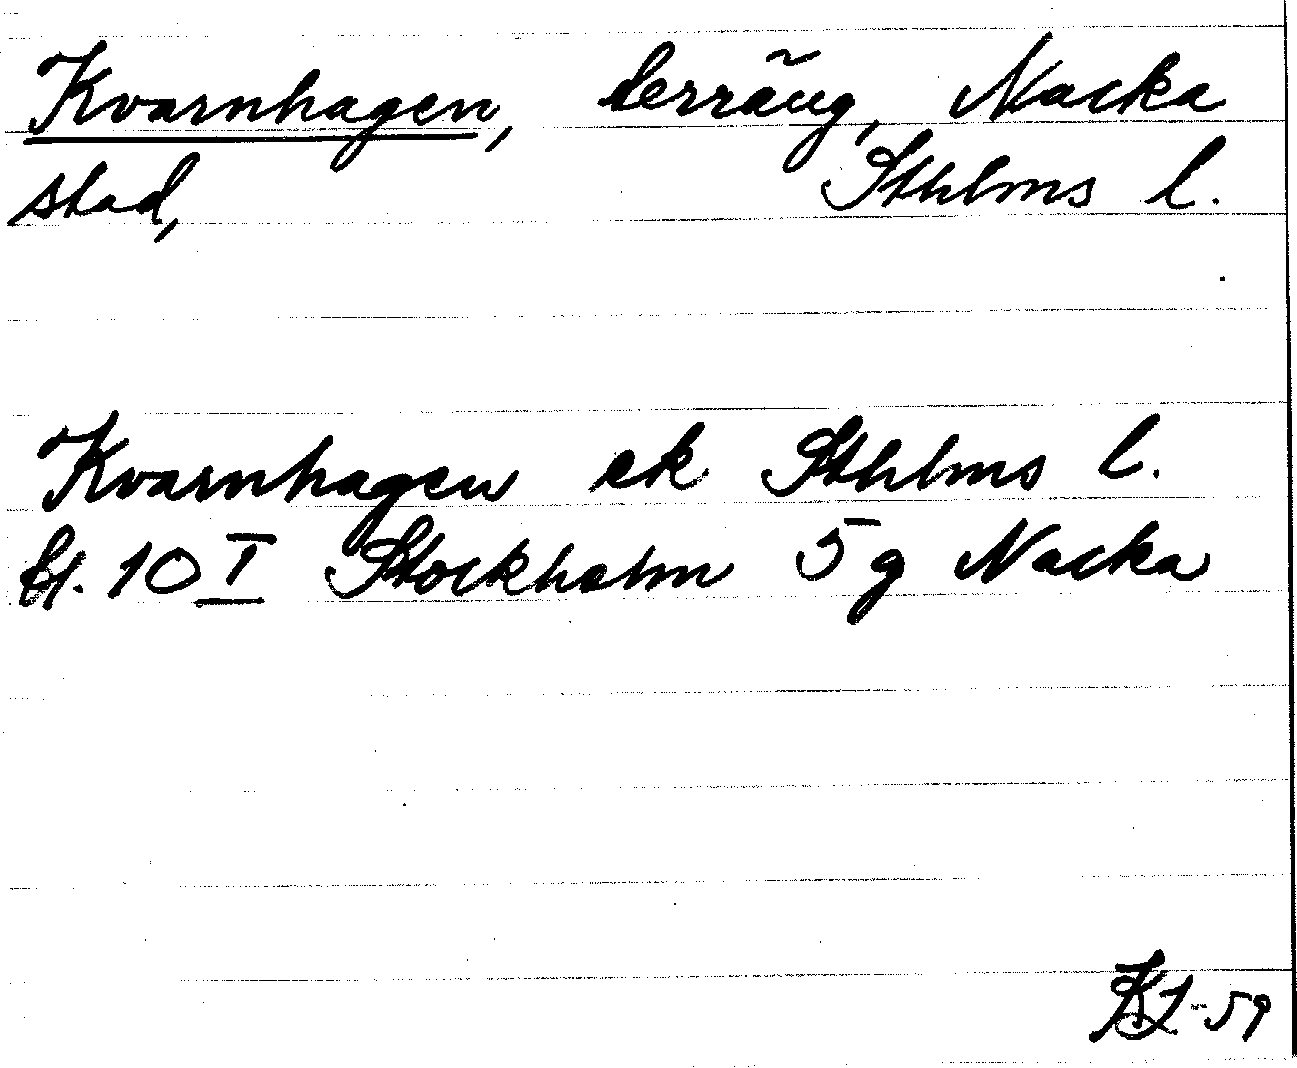 Kvarnhagen, terräng, Nacka
stad, Sthlms l.
Kvarnhagen ek Sthlms l.
bl. 10 I Stockholm 5 g Nacka
-59